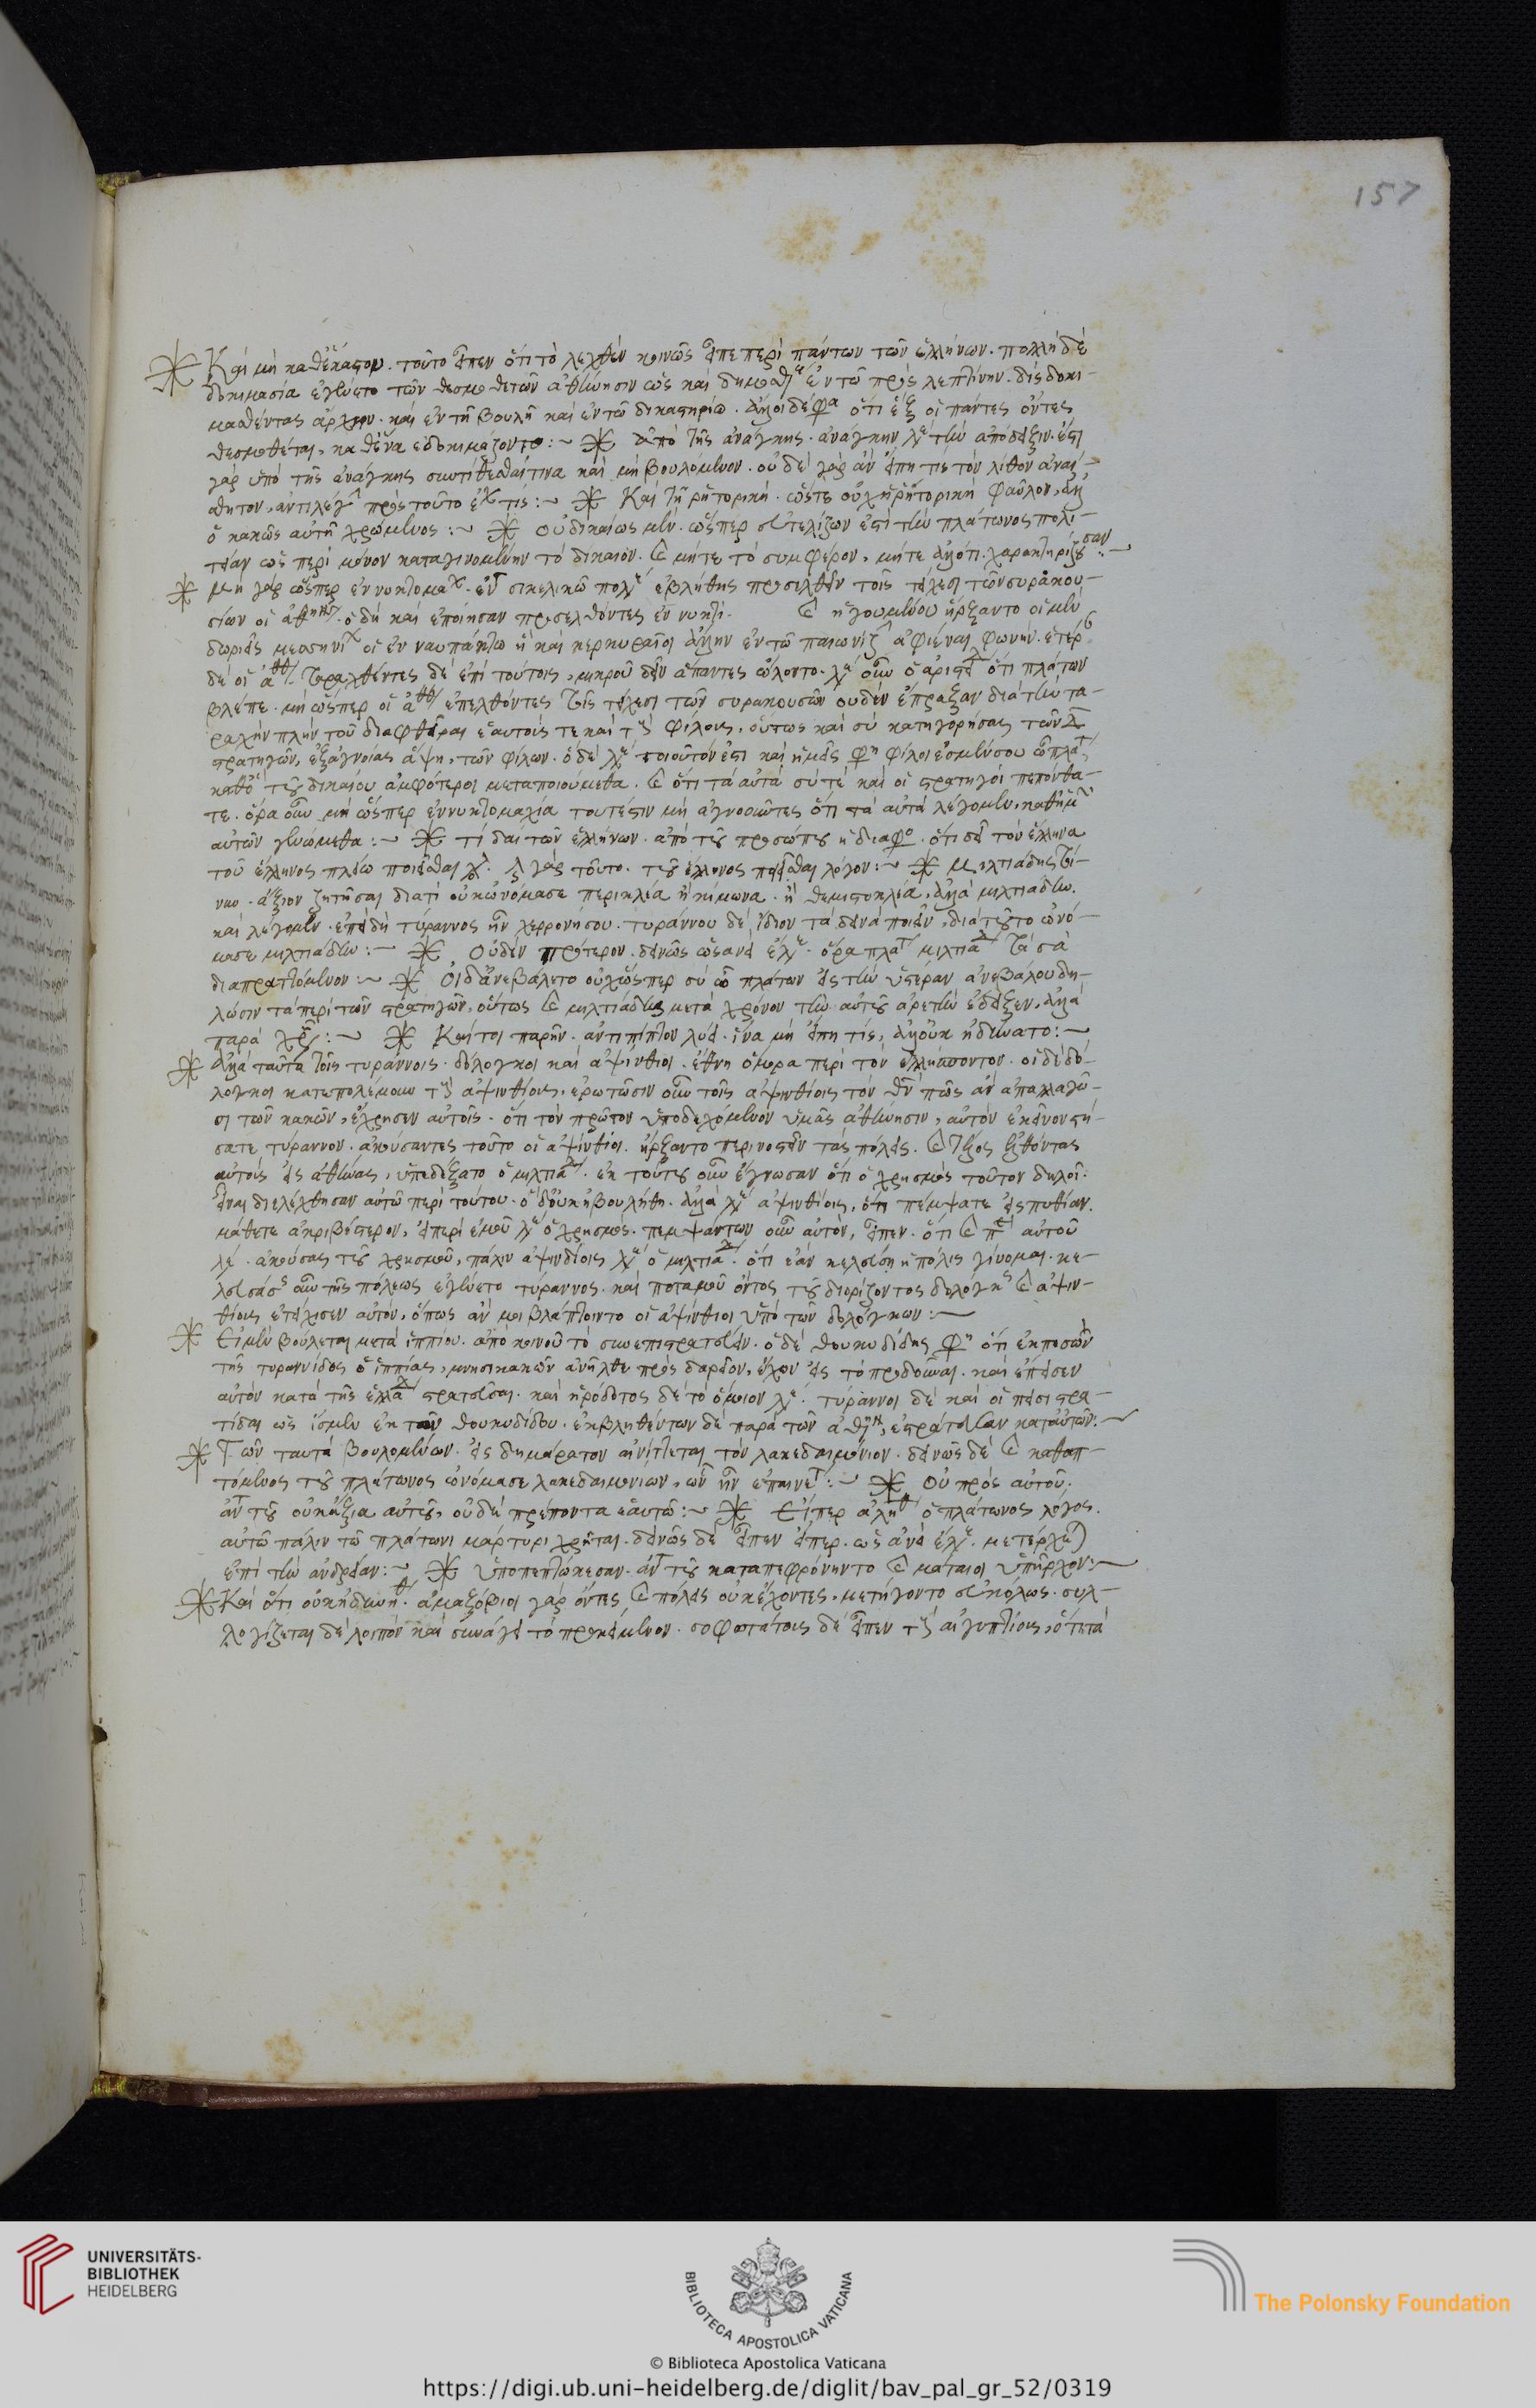 157
Καὶ μὴ καθέκαστον. τοῦτο εἶπεν ὅτι τὸ λεχθὲν κοινῶς εἶπε περὶ πάντων τῶν ἑλλήνων. πολλὴ δὲ
δοκιμασία ἐγένετο τῶν θεσμοθετῶν ἀθήνησιν ὡς καὶ δημοσθ ἐν τῶ πρὸς λεπτίνην. δὶς δοκι-
μασθέντας ἄρχειν. καὶ ἐν τῆ βουλῆ καὶ ἐν τῶ δικαστηρίω. ὅτι ἓξ οἱ πάντες ὄντες
θεσμοθέται, καθένα ἐδοκιμάζοντο :~ ἀπὸ τῆς ἀνάγκης. ἀνάγκην λε τὴν ἀπόδειξιν. ἔστι
γὰρ ὑπὸ τῆς ἀνάγκης συντίθεσθαί τινα καὶ μὴ βουλόμενον. οὐδὲ γὰρ ἂν εἴπη τις τὸν λίθον ἀναί-
σθητον, ἀντιλέγ πρὸς τοῦτο ἔχ τίς :~ Καὶ τῆ ῥητορικῆ. ὥστε οὐχ ἡ ῥητορικὴ φαῦλον, ἀλλ
ὁ κακῶς αὐτῆ χρώμενος :~ οὐ δικαίως μὲν. ὥσπερ εὐτελίζων ἐστὶ τὴν πλάτωνος πολι-
τείαν ὡς περὶ μόνον καταγινομένην τὸ δίκαιον. καὶ μήτε τὸ συμφέρον, μήτε ἄλλό τι χαρακτηρίζουσαν :~
Μὴ γὰρ ὥσπερ ἐν νυκτομαχ. ἐν σικελικῶ πολε ἐβλήθης προσελθεῖν τοῖς τείχεσι τῶν συρακου-
σίων οἱ ἀθην. ὃ δὴ καὶ ἐποίησαν προσελθόντες ἐν νυκτί. καὶ ἡγουμένου ἤρξαντο οἱ μὲν
δωριεῖς μεσσηνι οἱ ἐν ναυπάκτω ἢ καὶ κερκυραῖοι ἄλλην ἐν τῶ παιωνίζ ἀφιέναι φωνὴν. ἑτέρ
δὲ οἱ ἀθη. ταραχθέντες δὲ ἐπὶ τούτοις, μικροῦ δεῖν ἅπαντες ὤλοντο. λε οὖν ὁ ἀριστεί ὅτι πλάτων
βλέπε. μὴ ὥσπερ οἱ ἀθη ἐπελθόντες τοῖς τείχεσι τῶν συρακουσῶν οὐδὲν ἔπραξαν διὰ τὴν τα-
ραχὴν πλὴν τοῦ διαφθεῖραι ἑαυτούς τε καὶ τοὺς φίλους, οὕτως καὶ σὺ κατηγορήσας τῶν δ
στρατηγῶν, ἐξ ἀγνοίας ἅψη, τῶν φίλων. ὃ δὲ λε τοιοῦτόν ἐστι καὶ ἡμεῖς φη φίλοι ἐσμέν σου ὦ πλατ
καθὸ τοῦ δικαίου ἀμφότεροι μεταποιούμεθα. καὶ ὅτι τὰ αὐτὰ σύ τε καὶ οἱ στρατηγοὶ πεπόνθα-
τε. ὅρα οὖν μὴ ὥσπερ ἐν νυκτομαχία τουτέστιν μὴ ἀγνοοῦντες ὅτι τὰ αὐτὰ λέγομεν, καθ ἡμῶν
αὐτῶν γενώμεθα :~ τί δαὶ τῶν ἑλλήνων. ἀπὸ τοῦ προσώπου ἡ διαφο. ὅτι δεῖ τὸν ἕλληνα
τοῦ ἕλληνος πλέω ποιεῖσθαι λ. γὰρ τοῦτο. τοῦ ἕλληνος ποιεῖσθαι λόγον :~ Μιλτιάδης τοί-
νυν. ἄξιον ζητῆσαι διατί οὐκ ὠνόμασε περικλέα ἢ κίμωνα. ἢ θεμιστοκλέα, ἀλλὰ μιλτιάδην.
καὶ λέγομεν. ἐπειδὴ τύραννος ἦν χερρονήσου. τυράννου δὲ ἴδιον τὰ δεινὰ ποιεῖν, διὰ τοῦτο ὠνό-
μασε μιλτιάδην :~ Οὐδὲν πρότερον. δεινῶς ὡσανεὶ ἔλε. ὅρα πλατ μιλτιαδ τὰ σὰ
διαπραττόμενον :~ Οὐδ ἀνεβάλετο οὐχ ὥσπερ σὺ ὦ πλάτων εἰς τὴν ὑστέραν ἀνεβάλου δη-
λώσειν τὰ περὶ τῶν στρατηγῶν, οὕτως καὶ μιλτιάδης μετὰ χρόνον τὴν αὐτοῦ ἀρετὴν ἔδειξεν, ἀλλὰ
παρὰ χεῖρας :~ Καίτοι παρῆν. ἀντιπίπτον λύει. ἵνα μὴ εἴπη τίς, ἀλλ οὐκ ἠδύνατο :~
Ἀλλὰ ταῦτα τοῖς τυράννοις. δόλογκοι καὶ ἀψίνθιοι. ἔθνη ὅμορα περὶ τὸν ἑλλήσποντον. οἱ δὲ δό-
λογκοι κατεπολέμουν τοὺς ἀψινθίους, ἐρωτῶσιν οὖν τοῖς ἀψινθίοις τὸν θν πῶς ἂν ἀπαλλαγῶ-
σι τῶν κακῶν, ἔχρησεν αὐτοῖς. ὅτι τὸν πρῶτον ὑποδεχόμενον ὑμᾶς ἀθήνησιν, αὐτὸν ἐκεῖνον στή-
σατε τύραννον. ἀκούσαντες τοῦτο οἱ ἀψίνθιοι. ἤρξαντο περινοστεῖν τὰς πόλεις. καὶ τέλος ἐλθόντας
αὐτοὺς εἰς ἀθήνας, ὑπεδέξατο ὁ μιλτιαδ. ἐκ τούτου οὖν ἔγνωσαν ὅτι ὁ χρησμὸς τοῦτον δηλοῖ.
εἶναι διελέχθησαν αὐτῶ περὶ τούτου. ὃ δ οὐκ ἠβουλήθη. ἀλλὰ λε ἀψινθίοις, ὅτι πέμψατε εἰς πυθίαν.
μάθετε ἀκριβέστερον, εἰ περὶ ἐμοῦ λε ὁ χρησμός. πεμψάντων οὖν αὐτὸν, εἶπεν. ὅτι καὶ πε αὐτοῦ
λέ. ἀκούσας τοῦ χρησμοῦ, πάλιν ἀψινθίοις λε ὁ μιλτιαδ. ὅτι ἐὰν κελεύση ἡ πόλις γίνομαι. κε-
λευσάσ οὖν τῆς πόλεως ἐγένετο τύραννος. καὶ ποταμοῦ ὄντος τοῦ διορίζοντος δολόγκ καὶ ἀψιν-
θίους ἐτείχισεν αὐτὸν, ὅπως ἂν μὴ βλάπτοιντο οἱ ἀψίνθιοι ὑπὸ τῶν δολόγκων :~
Εἰ μὲν βούλεται μετὰ ἱππίου. ἀπὸ κοινοῦ τὸ συνεπιστρατεύειν. ὁ δὲ θουκυδίδης φη ὅτι ἐκπεσὼν
τῆς τυραννίδος ὁ ἱππίας, μνησικακῶν ἀνῆλθε πρὸς δαρεῖον, ἔχων εἰς τὸ προδοῦναι. καὶ ἔπεισεν
αὐτὸν κατὰ τῆς ἑλλαδ στρατεῦσαι. καὶ ἡρόδοτος δὲ τὸ ὅμοιον λε. τύραννοι δὲ καὶ οἱ πεισιστρα-
τίδαι ὡς ἴσμεν ἐκ τῶν θουκυδίδου. ἐκβληθέντων δὲ παρὰ τῶν ἀθην, ἐστράτευσαν κατ αὐτῶν. ~
Τῶν ταυτὰ βουλομένων. εἰς δημάρατον αἰνίττεται τὸν λακεδαιμόνιον. δεινῶς δὲ καὶ καθαπ-
τόμενος τοῦ πλάτωνος ὠνόμασε λακεδαιμονίων, ὧν ἦν ἐπαινετ :~ Οὐ πρὸς αὐτοῦ.
ἀντ τοῦ οὐκ ἄξια αὐτοῦ, οὐδὲ πρέποντα ἑαυτῶ :~ Εἴπερ ἀληθ ὁ πλάτωνος λόγος.
αὐτῶ πάλιν τῶ πλάτωνι μάρτυρι χρῆται. δεινῶς δὲ εἶπεν εἴπερ. ὡς ἀνεὶ ἔλε. μετέρχε
ἐπὶ τὴν ἀνδρείαν :~ ὑποπεπτώκεσαν. ἀντ τοῦ καταπεφρόνηντο καὶ μάταιοι ὑπῆρχον :~
Καὶ ὅτι οὐκ ἠδυνήθ. ἁμαξόβιοι γὰρ ὄντες καὶ πόλεις οὐκ ἔχοντες, μετήγοντο εὐκόλως. συλ-
λογίζεται δὲ λοιπὸν καὶ συνάγει τὸ προκείμενον. σοφωτάτους δὲ εἶπεν τοὺς αἰγυπτίους, ὅτι τὰ
UNIVERSITÄTS-
BIBLIOTHEK
HEIDELBERG
BIBLIOTECA APOSTOLICA VATICANA
The Polonsky Foundation
© Biblioteca Apostolica Vaticana
https://digi.ub.uni-heidelberg.de/diglit/bav_pal_gr_52/0319